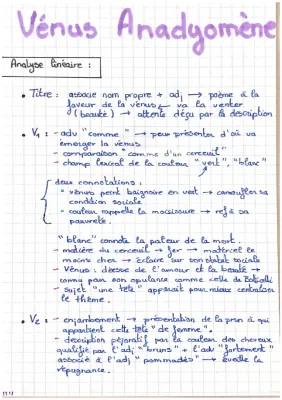 Vénus Anadyomène
Analyse linéaire :
• Titre : associe nom propre + adj → poème à la
faveur de la vénus ← va la vanter
(beauté) → attente déçu par la description
• V1 : - adv "comme" → pour présenter d'où va
émerger la vénus
- comparaison "comme d'un cercueil"
- champ lexical de la couleur "vert", "blanc"
deux connotations :
• vénus peint baignoire en vert → camoufler sa
condition sociale
• couleur rappelle la moisissure → ref à sa
pauvreté.
"blanc" connote la pâleur de la mort
- matière du cercueil → fer → matériel le
moins cher → éclaire sur son statut sociale
- Vénus : déesse de l'amour et la beauté →
connu pour son opulance comme celle de Botticelli
- sujet "une tête" apparaît pour mieux centraliser
le thème.
• V2 : - enjambement → présentation de la prsn à qui
appartient cette tête "de femme".
- description péjoratif par la couleur des cheveux
qualifié par l'adj "bruns" + l'adv "fortement"
associé à l'adj "pommadés" → éveille la
répugnance.